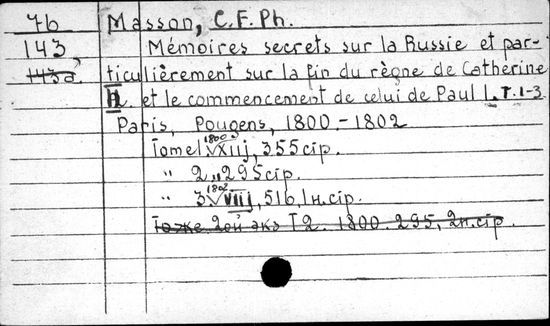 76 Masson, C.F.Ph.
143, Mémoires secrets sur la Russie et par-
143a, ticulièrement sur la fin du règne de Catherine
II. et le commencement de celui de Paul I. T. 1-3
Paris, Pougens, 1800.-1802
Tome 1 1800 XIIj, 355 cip.
" 2 " 295 cip.
" 3 1802 VIIj, 516, 1 н. cip.
То же. 2ой экз Т 2. 1800. 295, 2н. cip.